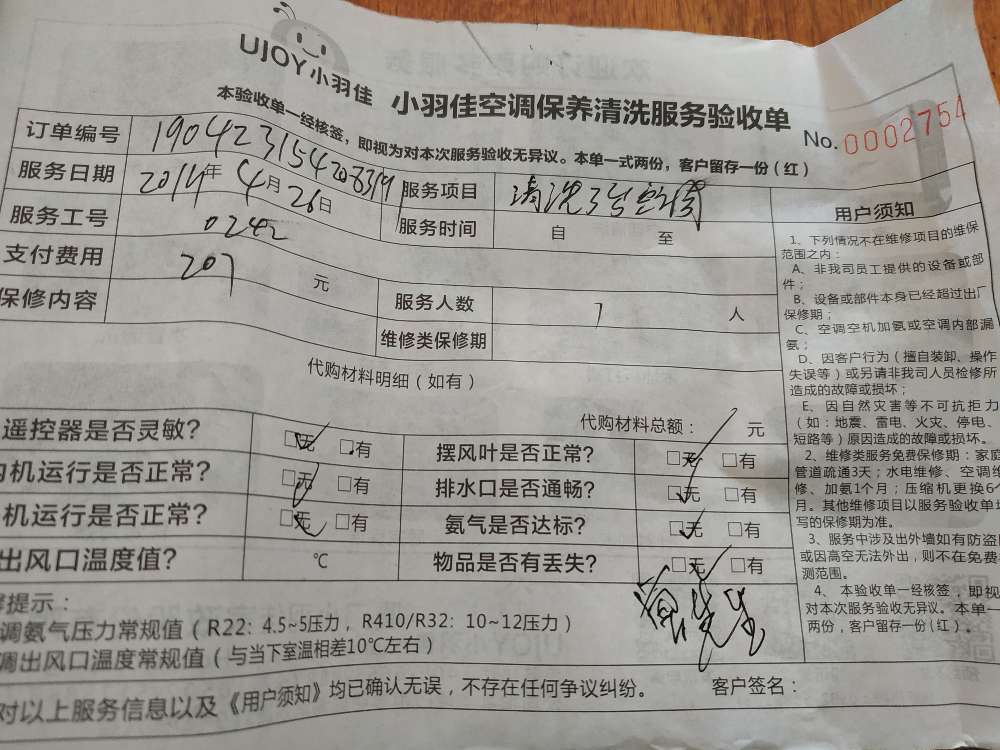 UJOY小羽佳
小羽佳空调保养清洗服务验收单
No.0002754
本验收单一经核签，即视为对本次服务验收无异议。本单一式两份，客户留存一份（红）
订单编号
服务日期 年 4月26日
服务项目 清洗
服务工号 0242
服务时间 自 至
支付费用 207 元
服务人数 1 人
保修内容
维修类保修期
代购材料明细（如有）
代购材料总额： 元
遥控器是否灵敏？ □无 □有
摆风叶是否正常？ □无 □有
内机运行是否正常？ □无 □有
排水口是否通畅？ □无 □有
机运行是否正常？ □无 □有
氨气是否达标？ □无 □有
出风口温度值？ ℃
物品是否有丢失？ □无 □有
提示：
调氨气压力常规值（R22：4.5~5压力，R410/R32：10~12压力）
调出风口温度常规值（与当下室温相差10℃左右）
对以上服务信息以及《用户须知》均已确认无误，不存在任何争议纠纷。
客户签名：
先生
用户须知
1、下列情况不在维修项目的维保
范围之内：
A、非我司员工提供的设备或部
件；
B、设备或部件本身已经超过出厂
保修期；
C、空调空机加氨或空调内部漏
氨；
D、因客户行为（擅自装卸、操作
失误等）或另请非我司人员检修所
造成的故障或损坏；
E、因自然灾害等不可抗拒力
（如：地震、雷电、火灾、停电、
短路等）原因造成的故障或损坏。
2、维修类服务免费保修期：家庭
管道疏通3天；水电维修、空调维
修、加氨1个月；压缩机更换6个
月。其他维修项目以服务验收单填
写的保修期为准。
3、服务中涉及出外墙如有防盗网
或因高空无法外出，则不在免费
测范围。
4、本验收单一经核签，即视
对本次服务验收无异议。本单一
两份，客户留存一份（红）。